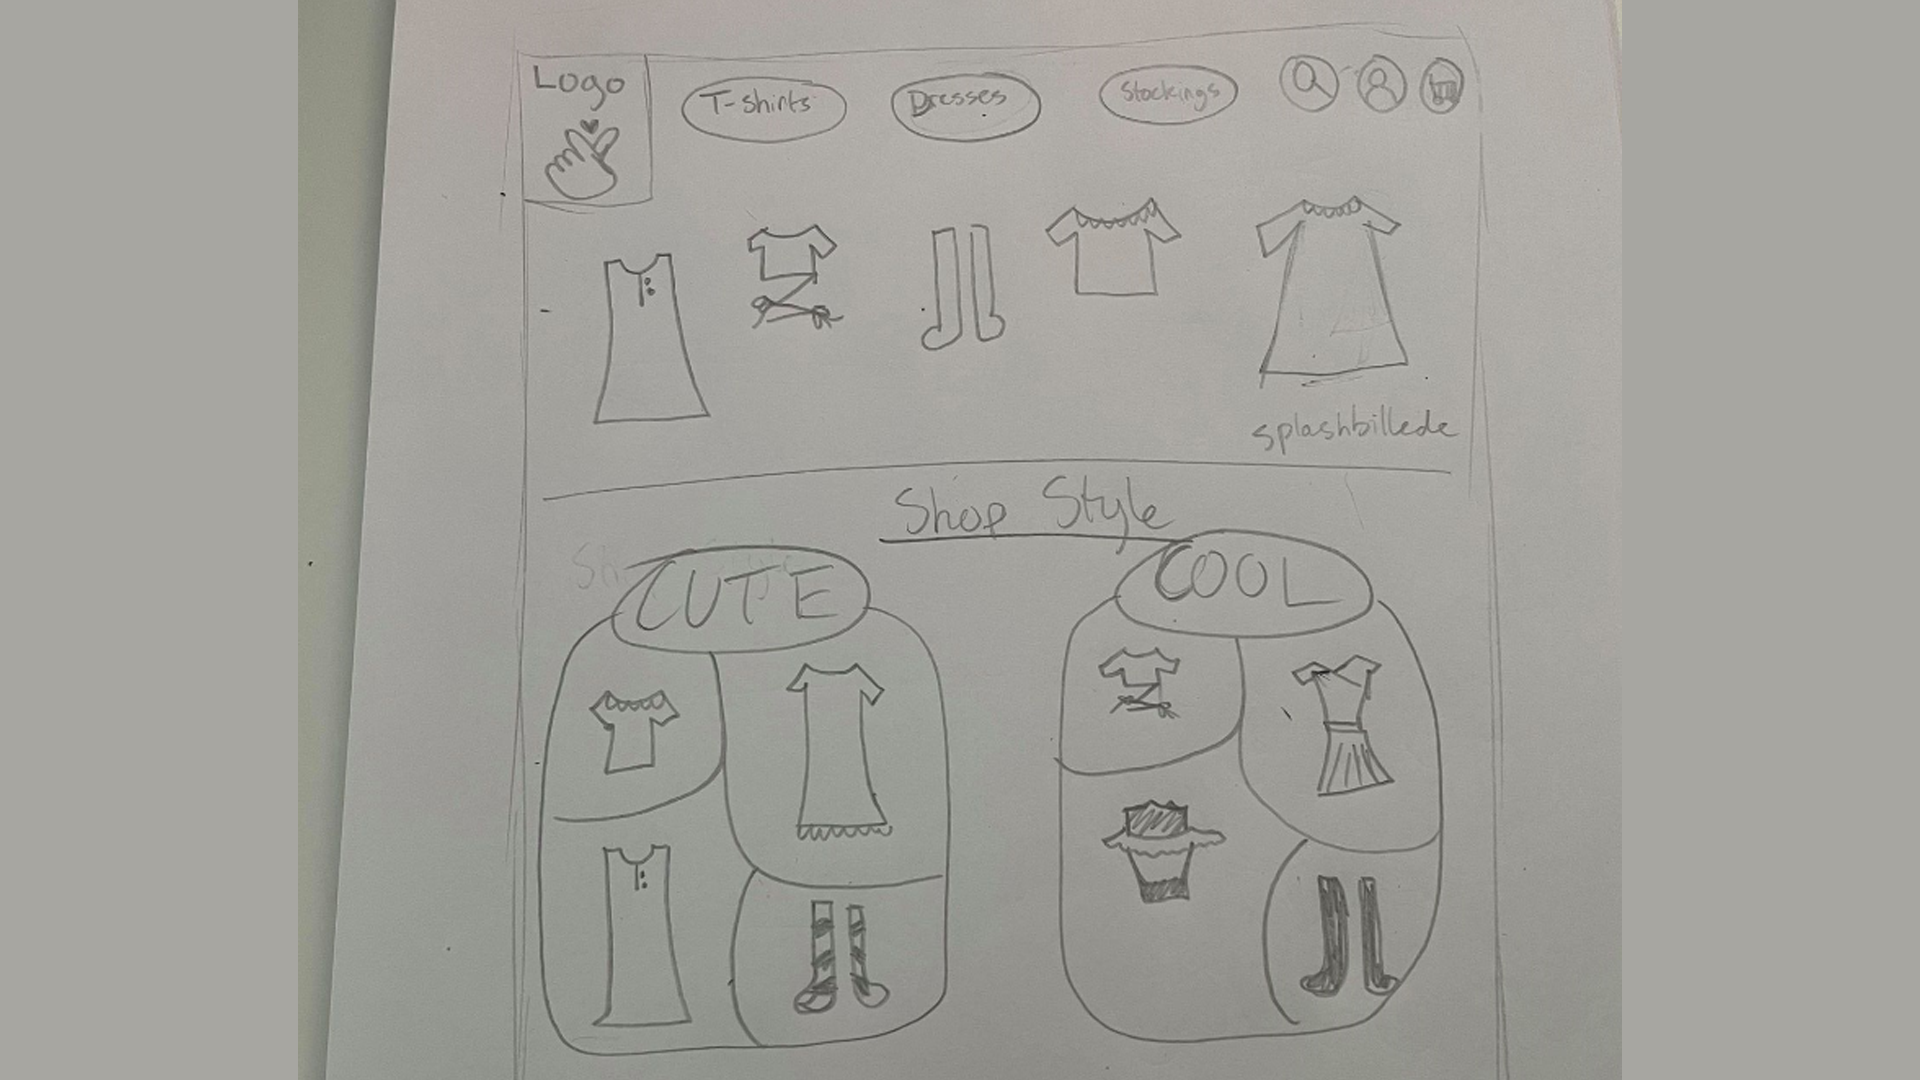 Logo
T-shirts
Dresses
Stockings
splashbillede
Shop Style
CUTE
COOL